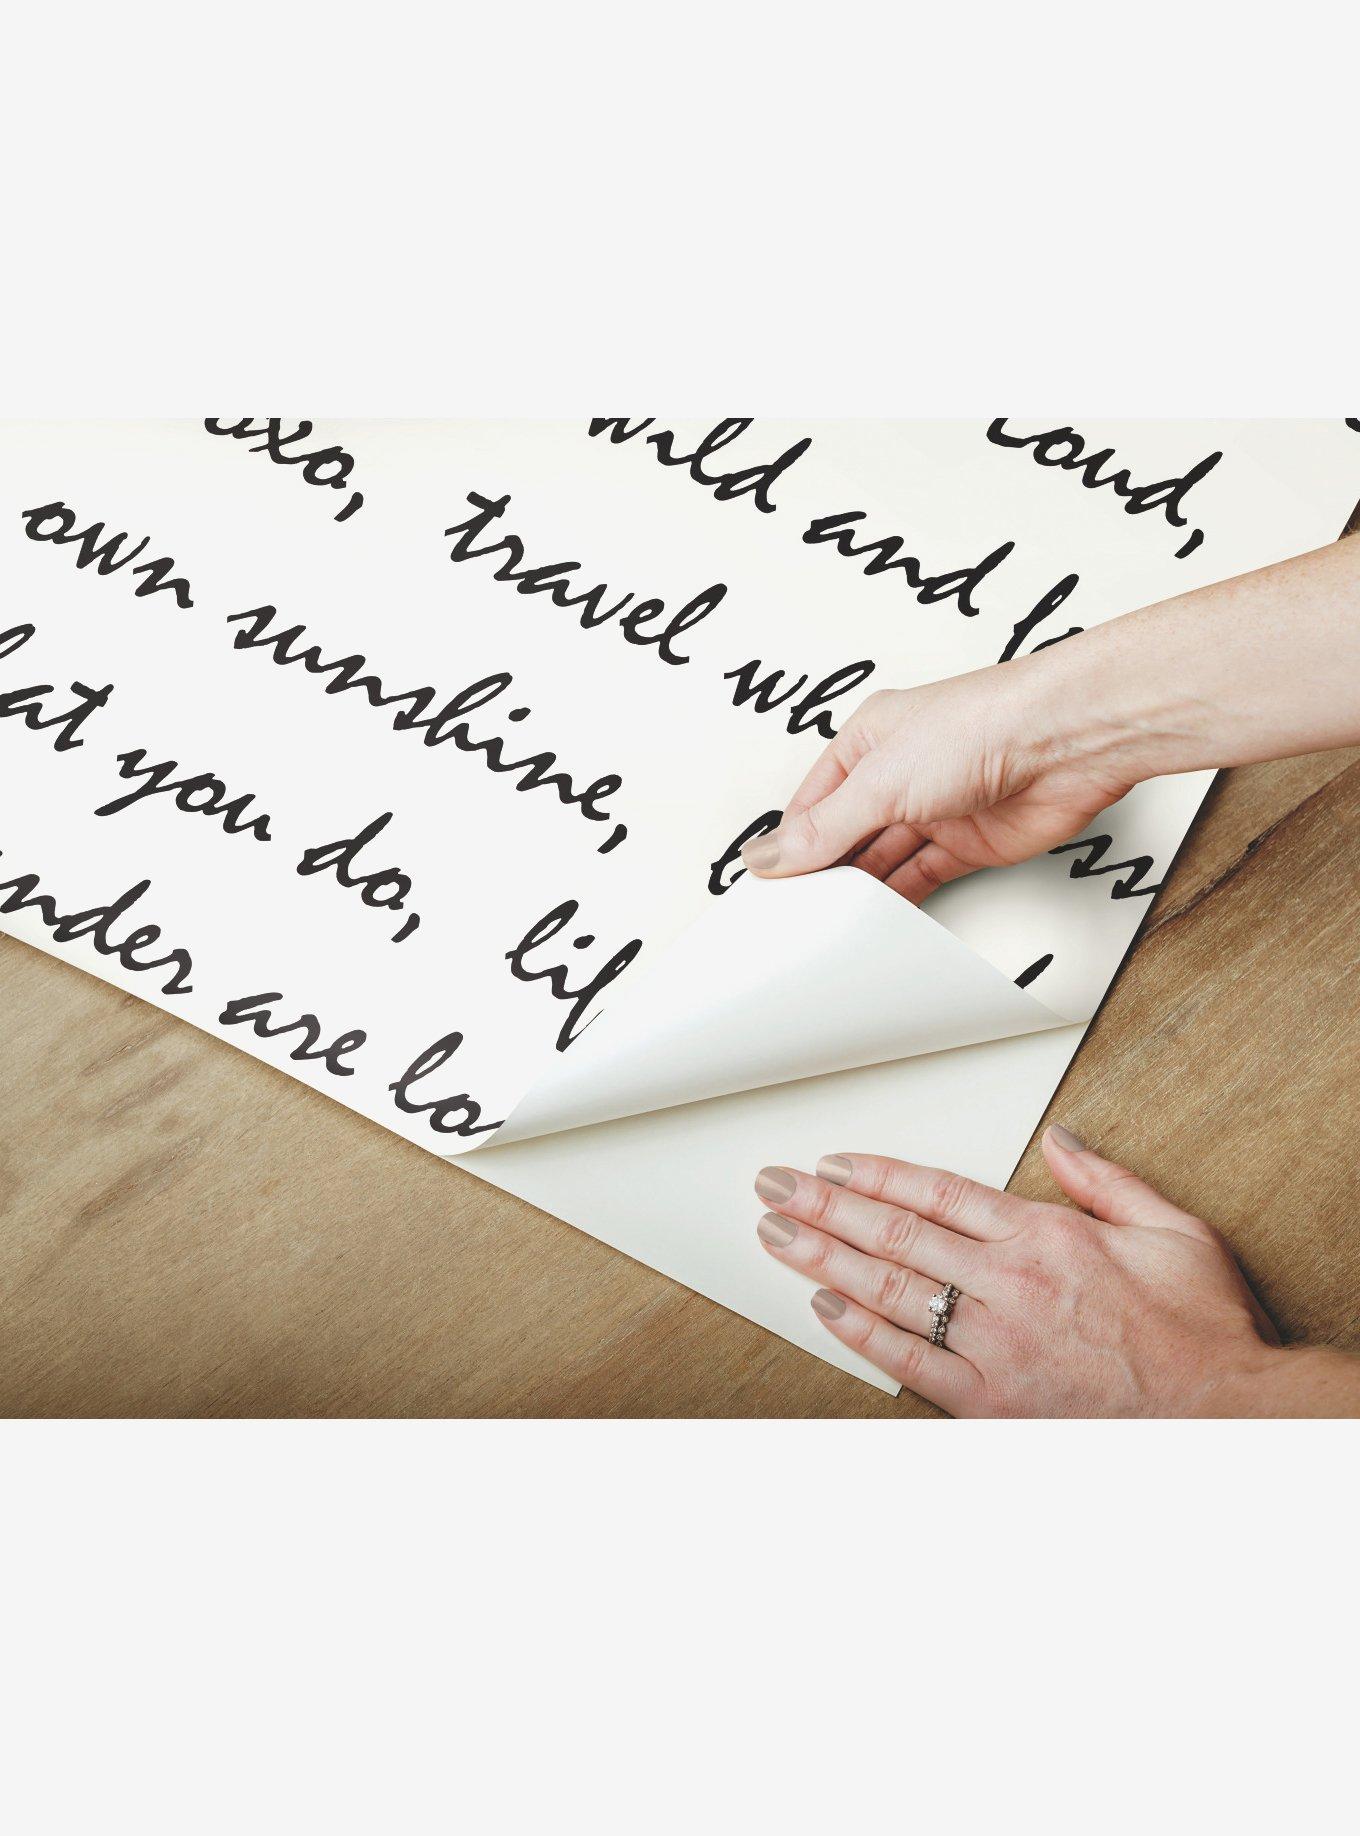 loud,
wild and
oxo, travel wh ss
own sunshine, b
hat you do, lif
nder are lo